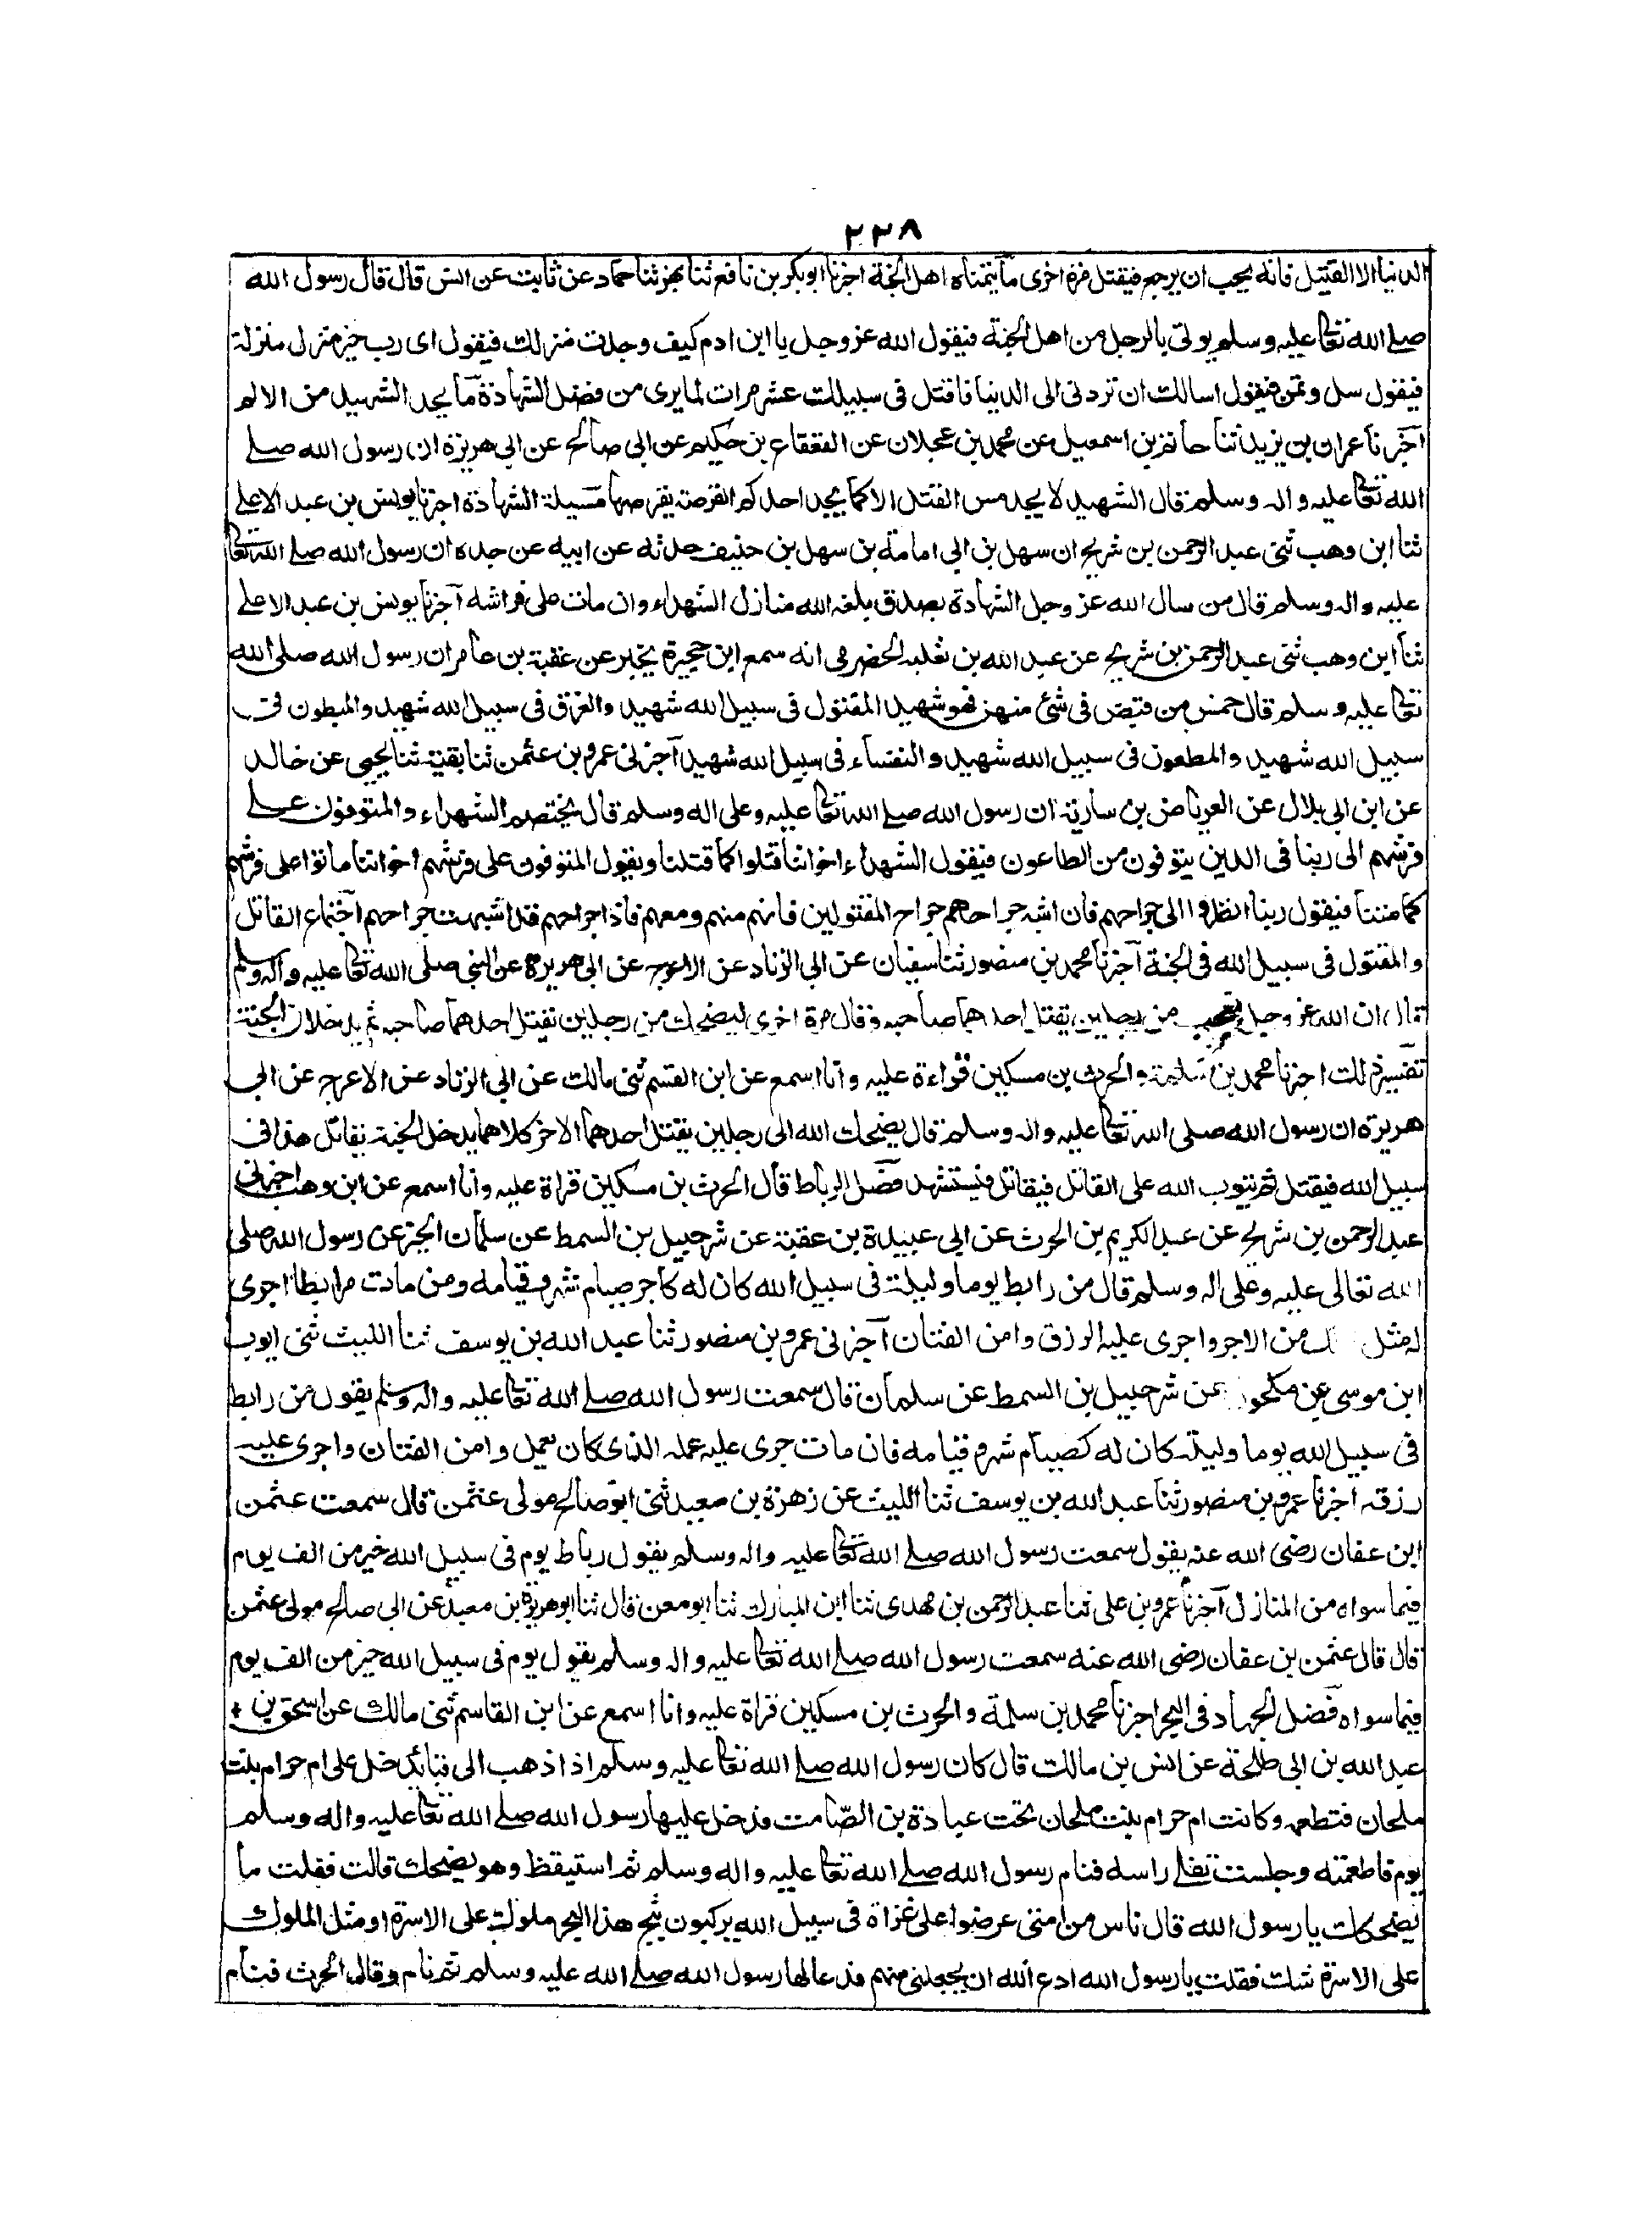 ٢٢٨
الدنيا الا القتيل فانه يحب ان يرجع فيقتل مرة اخرى ما يتمناه اهل الجنة اخبرنا ابوبكر بن نافع ثنا بهز ثنا حماد عن ثابت عن انس قال قال رسول الله
صلے الله تعالى عليه وسلم يوتى بالرجل من اهل الجنة فيقول الله عزوجل يا ابن ادم كيف وجدت منزلك فيقول اى رب خير منزل منزلة
فيقول سل وتمن فيقول اسالك ان تردنى الى الدنيا فاقتل فى سبيلك عشر مرات لما يرى من فضل الشهادة ما يجد الشهيد من الالم
آخبرنا عمران بن يزيد ثنا حاتم بن اسمعيل عن محمد بن عجلان عن القعقاع بن حكيم عن ابى صالح عن ابى هريرة ان رسول الله صلے
الله تعالى عليه واله وسلم قال الشهيد لا يجد مس القتل الا كما يجد احدكم القرصة يقرصها مسيلة الشهادة اخبرنا يونس بن عبد الاعلے
ثنا ابن وهب ثنى عبد الرحمن بن شريح ان سهل بن ابى امامة بن سهل بن حنيف حدثه عن ابيه عن جده ان رسول الله صلے الله تعالى
عليه واله وسلم قال من سال الله عز وجل الشهادة بصدق بلغه الله منازل الشهداء وان مات على فراشه آخبرنا يونس بن عبد الاعلے
ثنا ابن وهب ثنى عبد الرحمن بن شريح عن عبد الله بن ثعلبه الحضرمى انه سمع ابن حجيرة يخبر عن عقبة بن عامر ان رسول الله صلى الله
تعالى عليه وسلم قال خمس من قبض فى شئ منهن فهو شهيد المقتول فى سبيل الله شهيد والغرق فى سبيل الله شهيد والمبطون فى
سبيل الله شهيد والمطعون فى سبيل الله شهيد والنفساء فى سبيل الله شهيد آخبرنى عمرو بن عثمن ثنا بقية ثنا يحيى عن خالد
عن ابن ابى بلال عن العرباض بن سارية ان رسول الله صلے الله تعالى عليه وعلى اله وسلم قال يختصم الشهداء والمتوفون علے
فرشهم الى ربنا فى الذين يتوفون من الطاعون فيقول الشهداء اخواننا قتلوا كما قتلنا ويقول المتوفون على فرشهم اخواننا ماتوا على فرشهم
كما متنا فيقول ربنا انظروا الى جراحهم فان اشبه جراحهم جراح المقتولين فانهم منهم ومعهم فاذا جراحهم قد اشبهت جراحهم آجتماع القاتل
والمقتول فى سبيل الله فى الجنة آخبرنا محمد بن منصور ثنا سفيان عن ابى الزناد عن الاعرج عن ابى هريرة عن النبى صلى الله تعالى عليه واله وسلم
قال ان الله عز وجل يعجب من رجلين يقتل احدهما صاحبه وقال مرة اخرى ليضحك من رجلين يقتل احدهما صاحبه ثم يدخلان الجنة
تفسير ذلك اخبرنا محمد بن سلمة والحرث بن مسكين قراءة عليه وانا اسمع عن ابن القسم ثنى مالك عن ابى الزناد عن الاعرج عن ابى
هريرة ان رسول الله صلى الله تعالى عليه واله وسلم قال يضحك الله الى رجلين يقتل احدهما الاخر كلاهما يدخل الجنة يقاتل هذا فى
سبيل الله فيقتل ثم يتوب الله على القاتل فيقاتل فيستشهد فضل الرباط قال الحرث بن مسكين قراة عليه وانا اسمع عن ابن وهب اخبرنى
عبد الرحمن بن شريح عن عبد الكريم بن الحرث عن ابى عبيدة بن عقبة عن شرحبيل بن السمط عن سلمان الخير عن رسول الله صلى
الله تعالى عليه وعلى اله وسلم قال من رابط يوما وليلة فى سبيل الله كان له كاجر صيام شهر وقيامه ومن مات مرابطا اجرى
له مثل من الاجر واجرى عليه الرزق وامن الفتان آخبرنى عمرو بن منصور ثنا عبد الله بن يوسف ثنا الليث ثنى ايوب
ابن موسى عن مكحول عن شرحبيل بن السمط عن سلمان قال سمعت رسول الله صلے الله تعالى عليه واله وسلم يقول من رابط
فى سبيل الله يوما وليلة كان له كصيام شهر وقيامه فان مات جرى عليه عمله الذى كان يعمل وامن الفتان واجرى عليه
رزقه اخبرنا عمرو بن منصور ثنا عبد الله بن يوسف ثنا الليث عن زهرة بن معبد ثنى ابو صالح مولى عثمن قال سمعت عثمن
ابن عفان رضى الله عنه يقول سمعت رسول الله صلے الله تعالى عليه واله وسلم يقول رباط يوم فى سبيل الله خير من الف يوم
فيما سواه من المنازل آخبرنا عمرو بن على ثنا عبد الرحمن بن مهدى ثنا ابن المبارك ثنا ابو معن قال ثنا ابو هريرة بن معبد عن ابى صالح مولى عثمن
قال قال عثمن بن عفان رضى الله عنه سمعت رسول الله صلے الله تعالى عليه واله وسلم يقول يوم فى سبيل الله خير من الف يوم
فيما سواه فضل الجهاد فى البحر اخبرنا محمد بن سلمة والحرث بن مسكين قراة عليه وانا اسمع عن ابن القاسم ثنى مالك عن اسحق بن
عبد الله بن ابى طلحة عن انس بن مالك قال كان رسول الله صلے الله تعالى عليه وسلم اذا ذهب الى قبا يدخل على ام حرام بنت
ملحان فتطعمه وكانت ام حرام بنت ملحان تحت عبادة بن الصّامت فدخل عليها رسول الله صلے الله تعالى عليه واله وسلم
يوم فاطعمته وجلست تفلے راسه فنام رسول الله صلے الله تعالى عليه واله وسلم ثم استيقظ وهو يضحك قالت فقلت ما
يضحكك يا رسول الله قال ناس من امتى عرضوا على غزاة فى سبيل الله يركبون ثبج هذا البحر ملوك على الاسرة او مثل الملوك
على الاسرة شك فقلت يا رسول الله ادع الله ان يجعلنى منهم فدعا لها رسول الله صلے الله عليه وسلم ثم نام وقال الحرث فنام